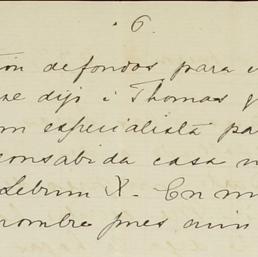 6.
ón de fondos para
ne dije á Thomas
especialista pa
consabida casa
Lebrum X. En
nombre pues